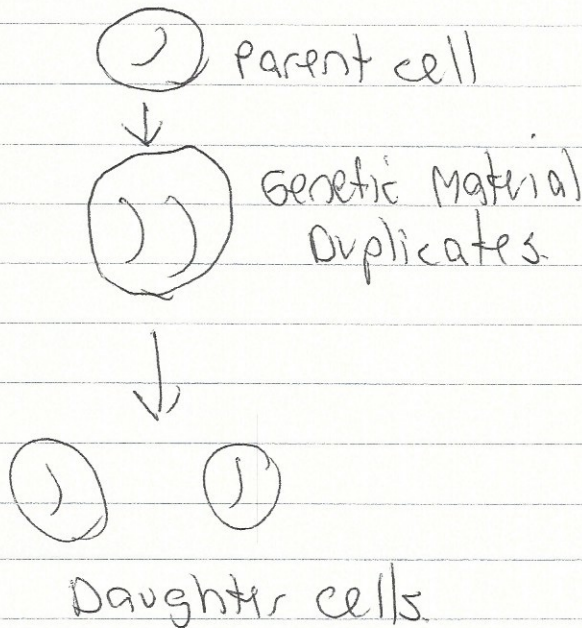 Parent cell
Genetic Material
Duplicates.
Daughter cells.